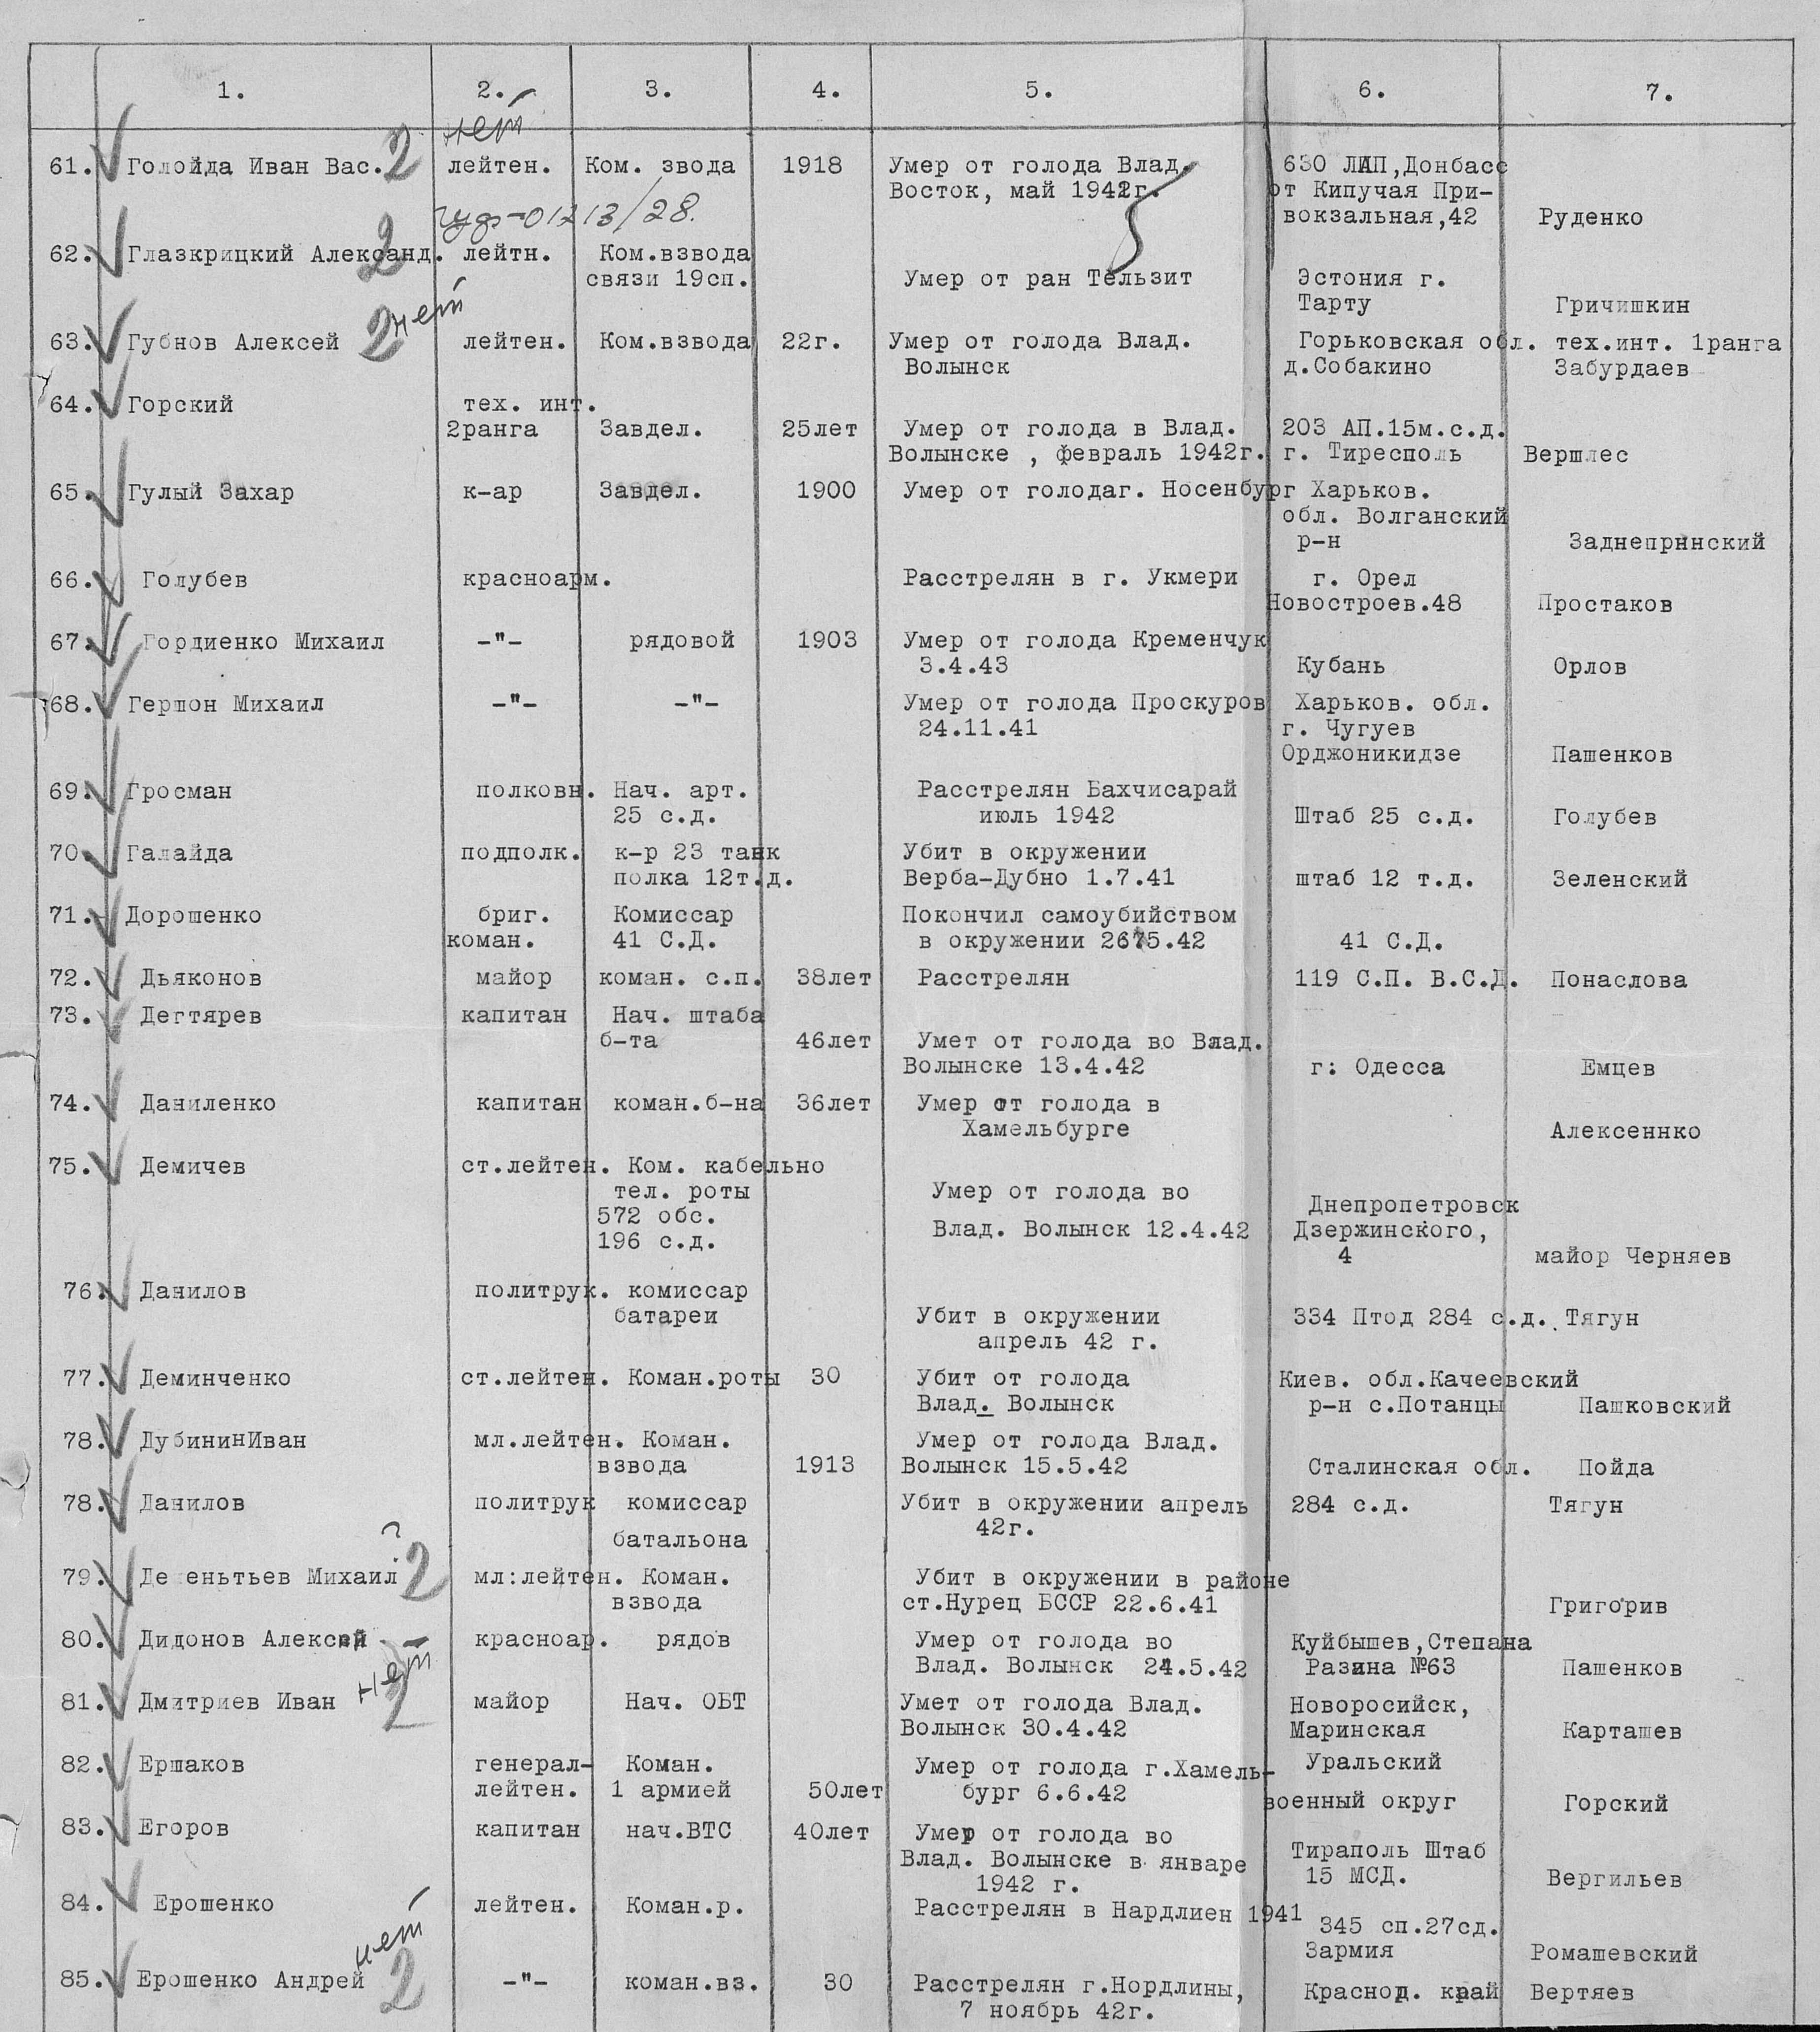 1. 2. 3. 4. 5. 6. 7.
нет
61. Голойда Иван Вас. 2 лейтен. Ком. звода 1918 Умер от голода Влад. 630 ЛАП,Донбасс
Восток, май 1942г. от Кипучая При-
вокзальная,42 Руденко
01213/28.
62. Глазкрицкий Александ. 2 лейтн. Ком.взвода
связи 19сп. Умер от ран Тельзит Эстония г.
Тарту Гричишкин
нет
63. Губнов Алексей 2 лейтен. Ком.взвода 22г. Умер от голода Влад. Горьковская обл. тех.инт. 1ранга
Волынск д.Собакино Забурдаев
64. Горский тех. инт.
2ранга Завдел. 25лет Умер от голода в Влад. 203 АП.15м.с.д.
Волынске , февраль 1942г. г. Тиресполь Вершлес
65. Гулый Захар к-ар Завдел. 1900 Умер от голодаг. Носенбург Харьков.
обл. Волганский
р-н Заднепрннский
66. Голубев красноарм. Расстрелян в г. Укмери г. Орел
Новостроев.48 Простаков
67. Гордиенко Михаил -"- рядовой 1903 Умер от голода Кременчук
3.4.43 Кубань Орлов
68. Гершон Михаил -"- -"- Умер от голода Проскуров Харьков. обл.
24.11.41 г. Чугуев
Орджоникидзе Пашенков
69. Гросман полковн. Нач. арт. Расстрелян Бахчисарай
25 с.д. июль 1942 Штаб 25 с.д. Голубев
70. Галайда подполк. к-р 23 танк Убит в окружении
полка 12т.д. Верба-Дубно 1.7.41 штаб 12 т.д. Зеленский
71. Дорошенко бриг. Комиссар Покончил самоубийством
коман. 41 С.Д. в окружении 2675.42 41 С.Д.
72. Дьяконов майор коман. с.п. 38лет Расстрелян 119 С.П. В.С.Д. Понаслова
73. Дегтярев капитан Нач. штаба
б-та 46лет Умет от голода во Влад.
Волынске 13.4.42 г: Одесса Емцев
74. Даниленко капитан коман.б-на 36лет Умер от голода в
Хамельбурге Алексеннко
75. Демичев ст.лейтен. Ком. кабельно
тел. роты Умер от голода во Днепропетровск
572 обс. Влад. Волынск 12.4.42 Дзержинского,
196 с.д. 4 майор Черняев
76. Данилов политрук. комиссар
батареи Убит в окружении 334 Птод 284 с.д. Тягун
апрель 42 г.
77. Деминченко ст.лейтен. Коман.роты 30 Убит от голода Киев. обл.Качеевский
Влад. Волынск р-н с.Потанцы Пашковский
78. ДубининИван мл.лейтен. Коман. Умер от голода Влад.
взвода 1913 Волынск 15.5.42 Сталинская обл. Пойда
78. Данилов политрук комиссар Убит в окружении апрель 284 с.д. Тягун
батальона 42г.
?
79. Де еньтьев Михаил 2 мл:лейтен. Коман. Убит в окружении в районе
взвода ст.Нурец БССР 22.6.41 Григорив
80. Дидонов Алексей красноар. рядов Умер от голода во Куйбышев,Степана
Влад. Волынск 24.5.42 Разина №63 Пашенков
нет
81. Дмитриев Иван 2 майор Нач. ОБТ Умет от голода Влад. Новоросийск,
Волынск 30.4.42 Маринская Карташев
82. Ершаков генерал- Коман. Умер от голода г.Хамель- Уральский
лейтен. 1 армией 50лет бург 6.6.42 военный округ Горский
83. Егоров капитан нач.ВТС 40лет Умер от голода во Тираполь Штаб
Влад. Волынске в январе 15 МСД. Вергильев
1942 г.
84. Ерошенко лейтен. Коман.р. Расстрелян в Нардлиен 1941 345 сп.27сд.
3армия Ромашевский
нет
85. Ерошенко Андрей 2 -"- коман.вз. 30 Расстрелян г.Нордлины, Краснод. край Вертяев
7 ноябрь 42г.